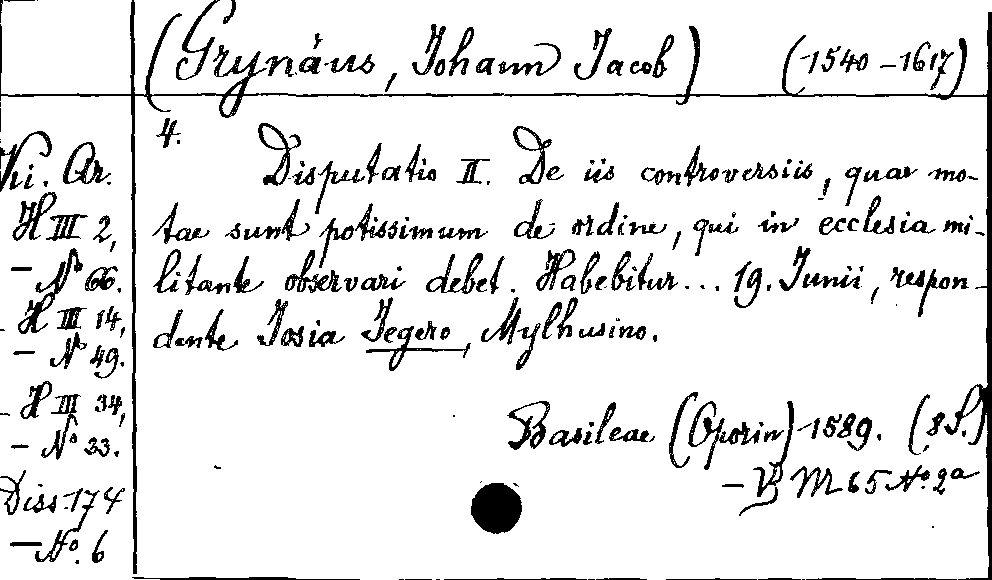 (Grynäus, Johann Jacob) (1540–1617)
4.
Disputatio II. De iis controversiis, quae mo-
tae sunt potissimum de ordine, qui in ecclesia mi-
litante observari debet. Habebitur... 19. Junii, respon-
dente Josia Jegero, Mylhusino.
Basileae (Oporin) 1589. (8 S.)
– VB M 65 No. 2a
Ki. Ar.
H III 2,
– No 66.
– H III 14,
– No 49.
– H III 34,
– No 33.
Diss. 174
– No. 6